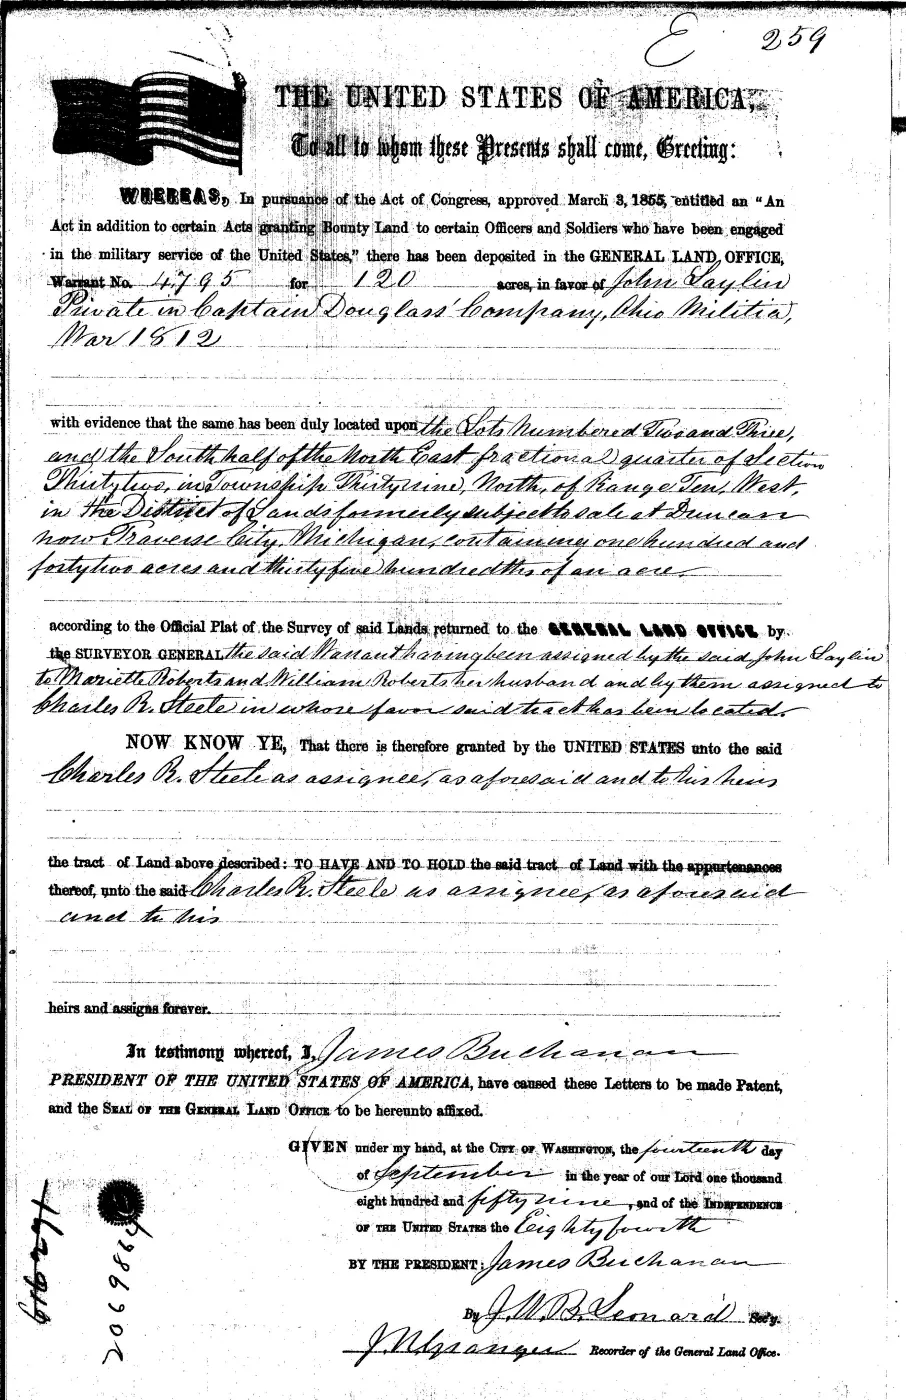 E 259
THE UNITED STATES OF AMERICA,
To all to whom these Presents shall come, Greeting:
WHEREAS, In pursuance of the Act of Congress, approved March 3, 1855, entitled an "An
Act in addition to certain Acts granting Bounty Land to certain Officers and Soldiers who have been engaged
in the military service of the United States," there has been deposited in the GENERAL LAND OFFICE,
Warrant No. 4795 for 120 acres, in favor of John Laylin
Private in Captain Douglass' Company, Ohio Militia,
War 1812
with evidence that the same has been duly located upon the Lots Numbered Two and Three,
and the South half of the North East fractional quarter of Section
Thirty two, in Township Thirty nine, North, of Range Ten, West,
in the District of Lands formerly subject to sale at Duncan
now Traverse City, Michigan, containing one hundred and
forty two acres and thirty five hundredths of an acre.
according to the Official Plat of the Survey of said Lands returned to the GENERAL LAND OFFICE by
the SURVEYOR GENERAL the said Warrant having been assigned by the said John Laylin
to Mariette Roberts and William Roberts her husband and by them assigned to
Charles R. Steele in whose favor said tract has been located.
NOW KNOW YE, That there is therefore granted by the UNITED STATES unto the said
Charles R. Steele as assignee, as aforesaid and to his heirs
the tract of Land above described: TO HAVE AND TO HOLD the said tract of Land with the appurtenances
thereof, unto the said Charles R. Steele as assignee, as aforesaid
and to his
heirs and assigns forever.
In testimony whereof, I, James Buchanan
PRESIDENT OF THE UNITED STATES OF AMERICA, have caused these Letters to be made Patent,
and the SEAL OF THE GENERAL LAND OFFICE to be hereunto affixed.
GIVEN under my hand, at the CITY OF WASHINGTON, the fourteenth day
of September in the year of our Lord one thousand
eight hundred and fifty nine, and of the INDEPENDENCE
OF THE UNITED STATES the Eighty fourth
BY THE PRESIDENT: James Buchanan
By J. W. B. Leonard Sec'y.
J. N. Granger Recorder of the General Land Office.
2069864